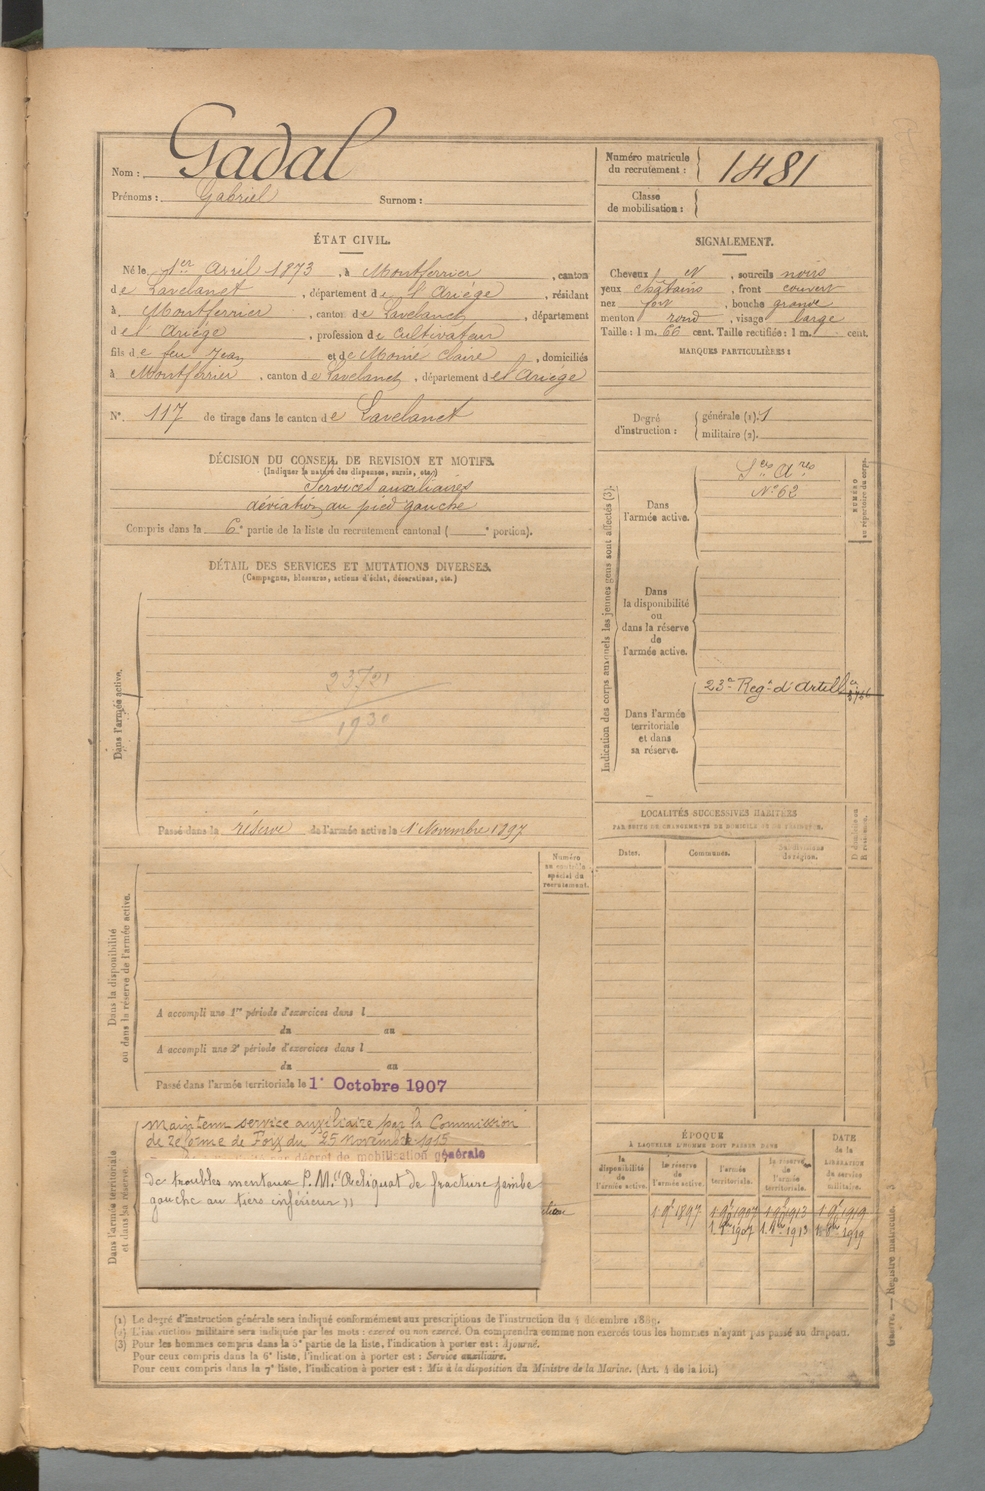 Nom : Gadal
Prénoms : Gabriel Surnom :
Numéro matricule du recrutement : 1481
Classe de mobilisation :
ÉTAT CIVIL.
Né le 1er Avril 1873, à Montferrier, canton
de Lavelanet, département de l'Ariége, résidant
à Montferrier, canton de Lavelanet, département
de l'Ariége, profession de Cultivateur
fils de feu Jean et de Monié Claire, domiciliés
à Montferrier, canton de Lavelanet, département de l'Ariége
N° 117 de tirage dans le canton de Lavelanet
SIGNALEMENT.
Cheveux N, sourcils noirs
yeux chatains, front couvert
nez fort, bouche grande
menton rond, visage large
Taille : 1 m. 66 cent. Taille rectifiée : 1 m. cent.
MARQUES PARTICULIÈRES :
Degré d'instruction : générale (1). 1
militaire (2).
DÉCISION DU CONSEIL DE REVISION ET MOTIFS.
(Indiquer la nature des dispenses, sursis, etc.)
Services auxiliaires
déviation au pied gauche
Compris dans la 6e partie de la liste du recrutement cantonal ( e portion).
DÉTAIL DES SERVICES ET MUTATIONS DIVERSES.
(Campagnes, blessures, actions d'éclat, décorations, etc.)
Dans l'armée active.
1930
Passé dans la réserve de l'armée active le 1er Novembre 1897
Indication des corps auxquels les jeunes gens sont affectés (3).
NUMÉRO au répertoire du corps.
Dans l'armée active.
Ses Ares
N° 62
Dans la disponibilité ou dans la réserve de l'armée active.
Dans l'armée territoriale et dans sa réserve.
23e Regt d'Artill
LOCALITÉS SUCCESSIVES HABITÉES
PAR SUITE DE CHANGEMENTS DE DOMICILE OU DE RÉSIDENCE.
Dates. Communes. Subdivisions de région. D domicile ou R résidence.
Numéro au contrôle spécial du recrutement.
Dans la disponibilité ou dans la réserve de l'armée active.
A accompli une 1re période d'exercices dans l
du au
A accompli une 2e période d'exercices dans l
du au
Passé dans l'armée territoriale le 1er Octobre 1907
Dans l'armée territoriale et dans sa réserve.
Maintenu service auxiliaire par la Commission
de réforme de Foix du 25 novembre 1915
décret de mobilisation générale
de troubles mentaux P.M. "Reliquat de fracture jambe
gauche au tiers inférieur"
ÉPOQUE
À LAQUELLE L'HOMME DOIT PASSER DANS
la disponibilité de l'armée active. la réserve de l'armée active. l'armée territoriale. la réserve de l'armée territoriale.
DATE de la LIBÉRATION du service militaire.
(1) Le degré d'instruction générale sera indiqué conformément aux prescriptions de l'instruction du 4 décembre 1889.
(2) L'instruction militaire sera indiquée par les mots : exercé ou non exercé. On comprendra comme non exercés tous les hommes n'ayant pas passé au drapeau.
(3) Pour les hommes compris dans la 5e partie de la liste, l'indication à porter est : Ajourné.
Pour ceux compris dans la 6e liste, l'indication à porter est : Service auxiliaire.
Pour ceux compris dans la 7e liste, l'indication à porter est : Mis à la disposition du Ministre de la Marine. (Art. 4 de la loi.)
Registre matricule.